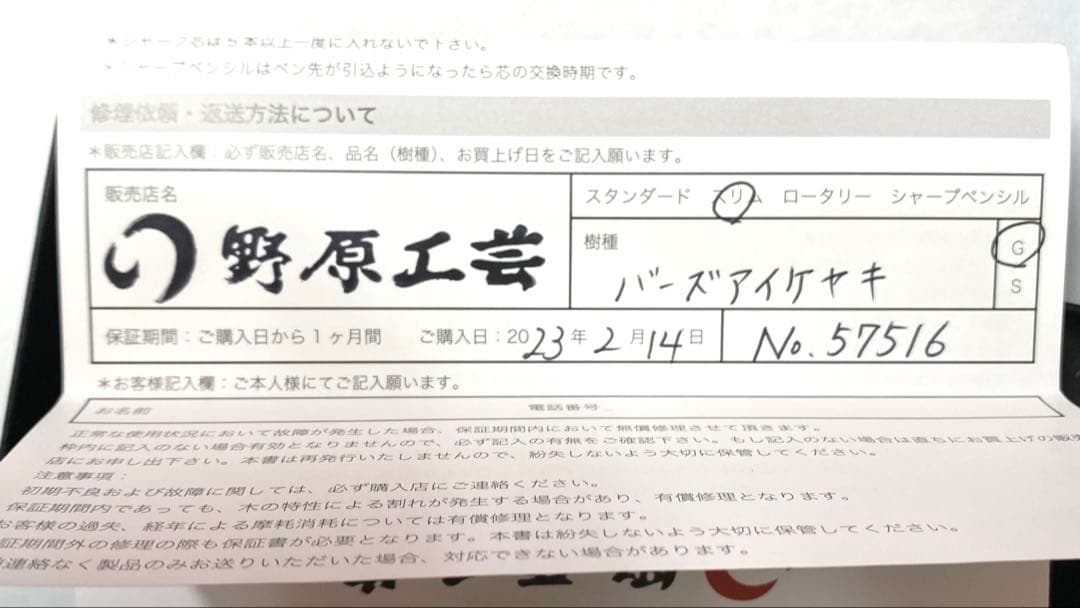 ＊シャープ芯は5本以上一度に入れないで下さい。
＊シャープペンシルはペン先が引込ようになったら芯の交換時期です。
修理依頼・返送方法について
＊販売店記入欄：必ず販売店名、品名（樹種）、お買上げ日をご記入願います。
販売店名
野原工芸
スタンダード スリム ロータリー シャープペンシル
樹種
バーズアイケヤキ
G
S
保証期間：ご購入日から1ヶ月間 ご購入日：2023年2月14日
No.57516
＊お客様記入欄：ご本人様にてご記入願います。
お名前 電話番号
正常な使用状況において故障が発生した場合、保証期間内において無償修理させて頂きます。
枠内に記入のない場合有効となりませんので、必ず記入の有無をご確認下さい。もし記入のない場合は直ちにお買上げの販売
店にお申し出下さい。本書は再発行いたしませんので、紛失しないよう大切に保管してください。
注意事項：
初期不良および故障に関しては、必ず購入店にご連絡ください。
保証期間内であっても、木の特性による割れが発生する場合があり、有償修理となります。
お客様の過失、経年による摩耗消耗については有償修理となります。
証期間外の修理の際も保証書が必要となります。本書は紛失しないよう大切に保管してください。
連絡なく製品のみお送りいただいた場合、対応できない場合があります。